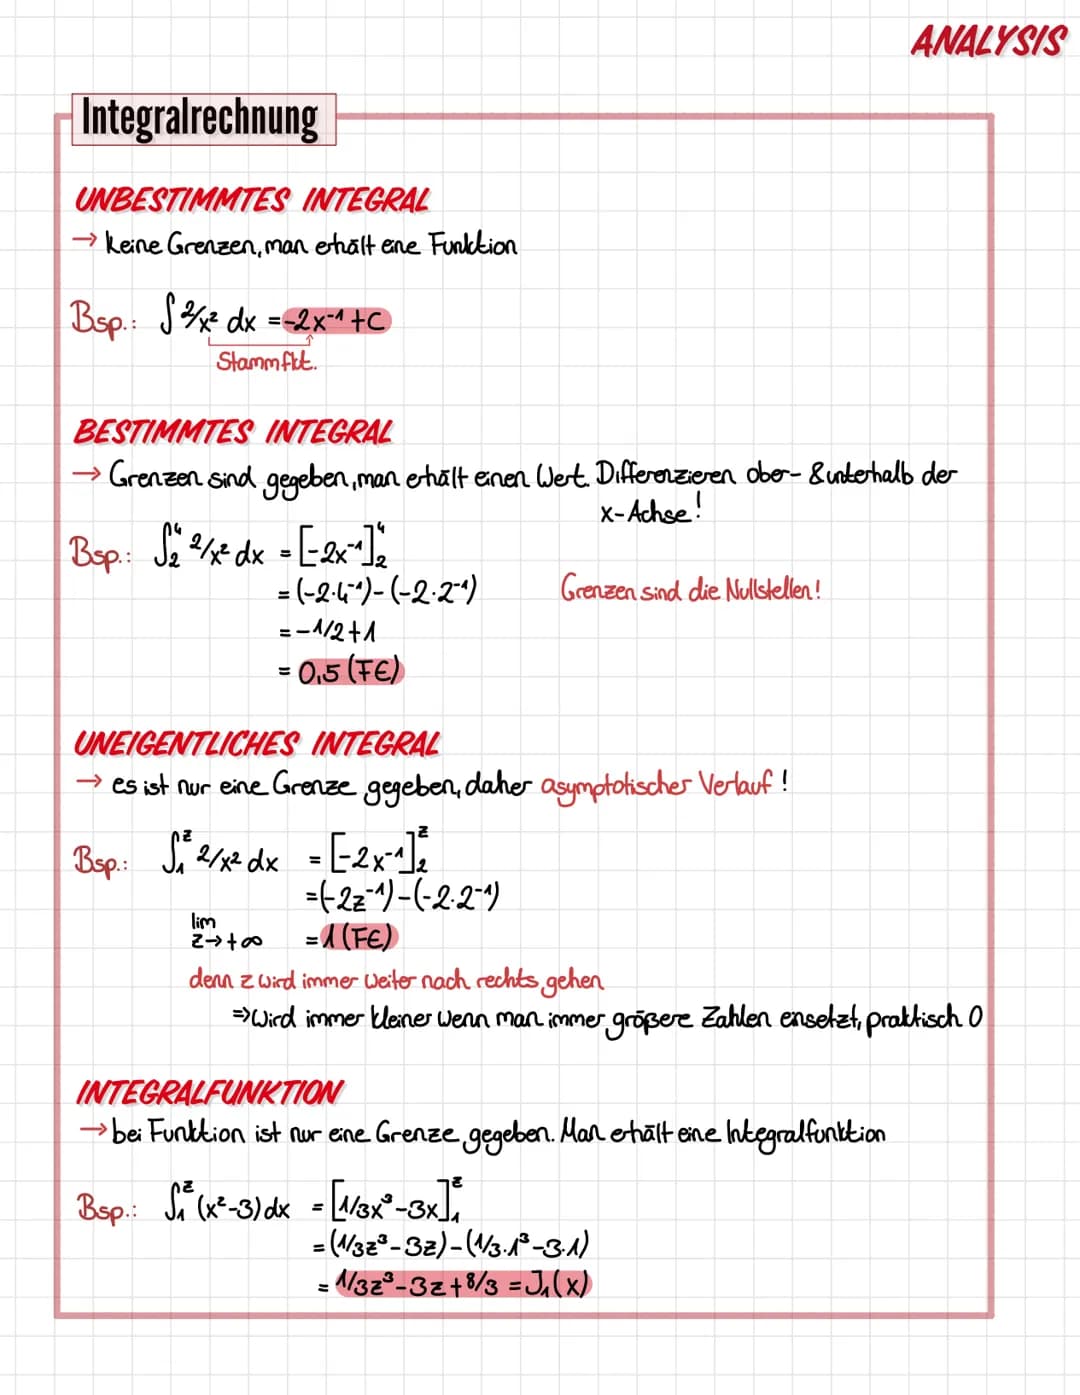 ANALYSIS
Integralrechnung
UNBESTIMMTES INTEGRAL
→ keine Grenzen, man erhält eine Funktion
Bsp.: ∫ 2/x² dx = -2x⁻¹ + C
Stammfkt.
BESTIMMTES INTEGRAL
→ Grenzen sind gegeben, man erhält einen Wert. Differenzieren ober- & unterhalb der
x-Achse!
Bsp.: ∫₂⁴ 2/x² dx = [-2x⁻¹]₂⁴
= (-2·4⁻¹) - (-2·2⁻¹)
Grenzen sind die Nullstellen!
= -1/2 + 1
= 0,5 (FE)
UNEIGENTLICHES INTEGRAL
→ es ist nur eine Grenze gegeben, daher asymptotischer Verlauf!
Bsp.: ∫₁ᶻ 2/x² dx = [-2x⁻¹]₂ᶻ
= (-2z⁻¹) - (-2·2⁻¹)
lim
z→+∞ = 1 (FE)
denn z wird immer weiter nach rechts gehen
⇒ Wird immer kleiner wenn man immer größere Zahlen einsetzt, praktisch 0
INTEGRALFUNKTION
→ bei Funktion ist nur eine Grenze gegeben. Man erhält eine Integralfunktion
Bsp.: ∫₁ᶻ (x²-3) dx = [1/3x³-3x]₁ᶻ
= (1/3z³-3z) - (1/3·1³-3·1)
= 1/3z³-3z+8/3 = J₁(x)